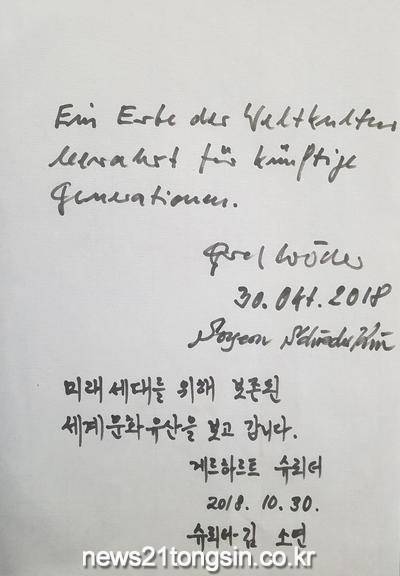 Ein Erbe der Weltkultur
bewahrt für künftige
Generationen.
30. Okt. 2018
Soyeon Schröder-Kim
미래 세대를 위해 보존된
세계문화유산을 보고 갑니다.
게르하르트 슈뢰더
2018. 10. 30.
슈뢰더-김 소연
news21tongsin.co.kr